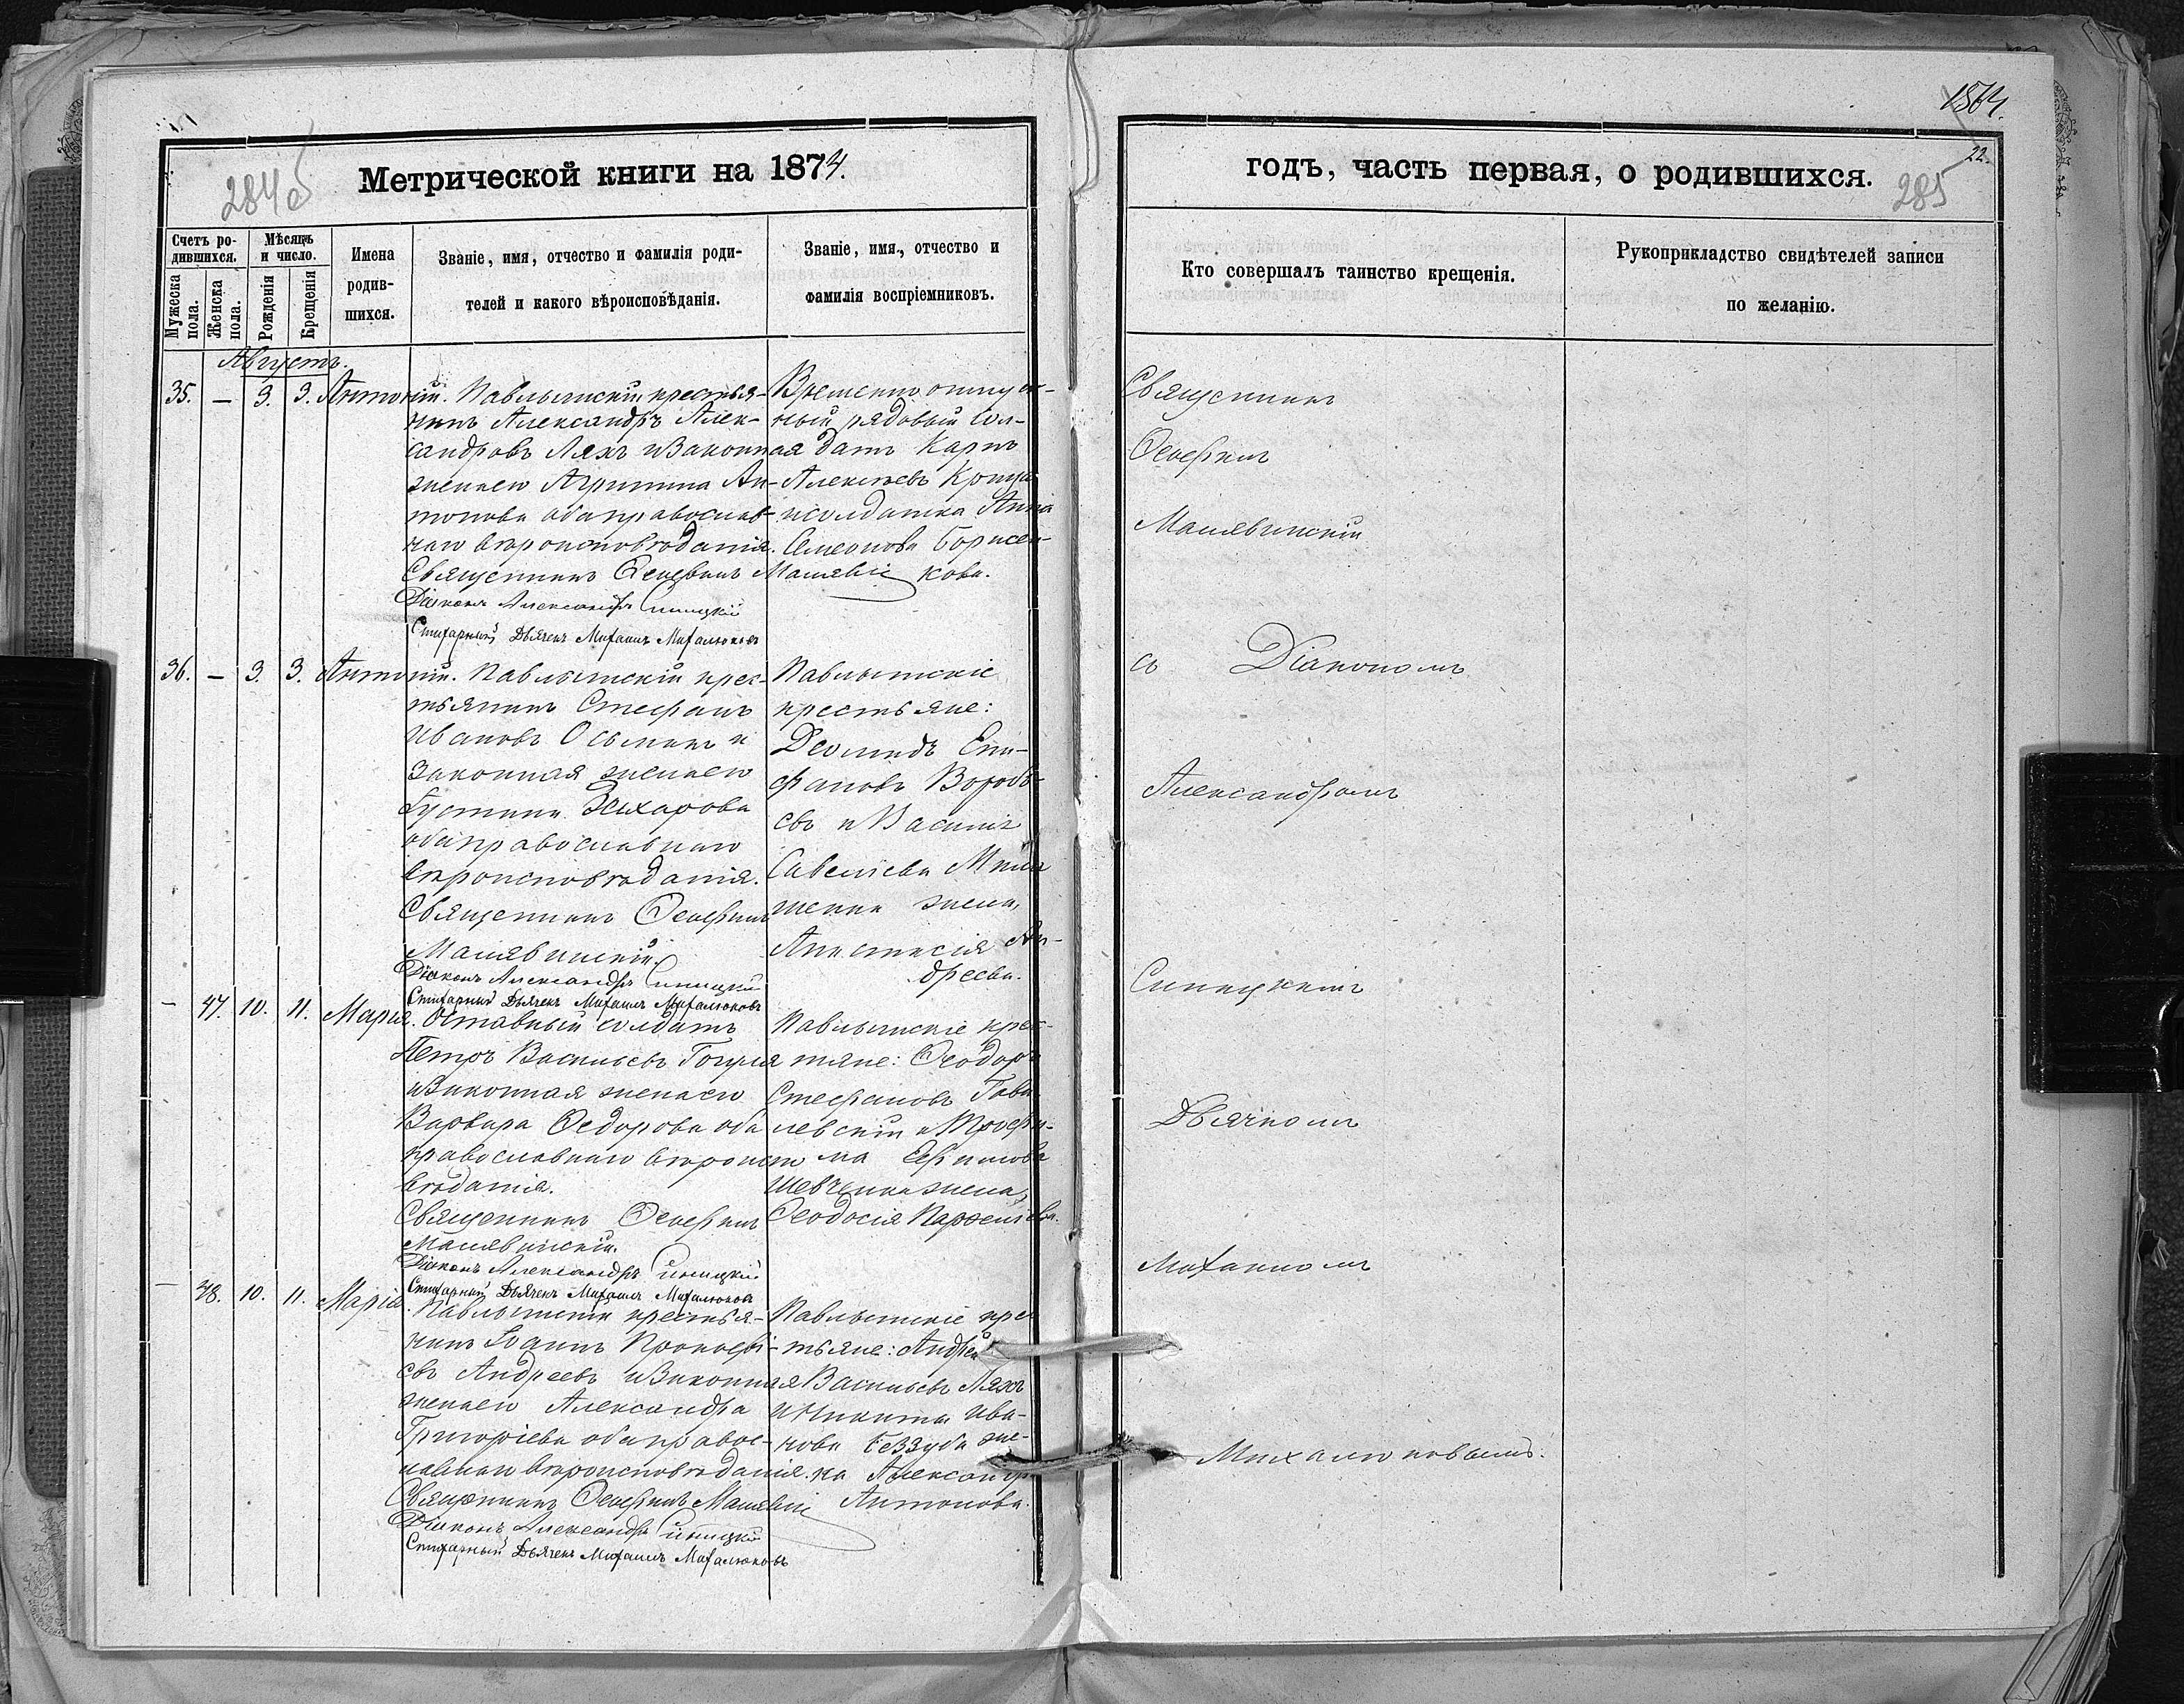 284об
Метрической книги на 1874.
Счетъ родившихся.
Мужеска пола.
Женска пола.
Мѣсяцъ и число.
Рожденія
Крещенія
Имена родившихся.
Званіе, имя, отчество и фамилія роди-
телей и какого вѣроисповѣданія.
Званіе, имя, отчество и
фамилія воспріемниковъ.
Августъ.
35. — 3. 3. Антоній. Павлышскій крестья-
нинъ Александръ Алек-
сандровъ Ляхъ и законная
жена его Агрипина Ан-
тонова оба православ-
наго вѣроисповѣданія.
Священникъ
Діяконъ Александръ Синицкій
Стихарный Дьячекъ Михаилъ Михалюковъ
Временно отпуск-
ный рядовый Сол-
датъ Карпъ
Алексѣевъ
и солдатка Анна
Семенова Борисен-
кова.
36. — 3. 3. Антоній. Павлышскій крес-
тьянинъ Стефанъ
Ивановъ и
законная жена его
Захарова
оба православнаго
вѣроисповѣданія.
Священникъ
Діяконъ Александръ Синицкій
Стихарный Дьячекъ Михаилъ Михалюковъ
Павлышскіе
крестьяне:
Деомидъ Епи-
фановъ Вороб-
евъ и Василія
Савеліева
жена,
Анастасія Ан-
дреева.
— 47. 10. 11. Марія. Отставный солдатъ
Петръ Васильевъ
и законная жена его
Варвара Федорова оба
православнаго вѣроиспо
вѣданія.
Священникъ
Діяконъ Александръ Синицкій
Стихарный Дьячекъ Михаилъ Михалюковъ
Павлышскіе крес-
тяне: Ѳеодоръ
Стефановъ Гав
левскій и Трофи-
ма Ефимова
Шевченка жена,
Ѳеодосія Парфеніева.
— 48. 10. 11. Марія. Павлышскій крестья-
нинъ Іоаннъ Прокофі-
евъ Андреевъ и законная
жена его Александра
Григоріева оба правос-
лавнаго вѣроисповѣданія.
Священникъ
Діяконъ Александръ Синицкій
Стихарный Дьячекъ Михаилъ Михалюковъ
Павлышскіе крес
тьяне: Андрей
Васильевъ Ляхъ
и Никиты Ива-
нова Беззуба же-
на Александра
Антонова.
22.
годъ, часть первая, о родившихся.
285
Кто совершалъ таинство крещенія.
Рукоприкладство свидѣтелей записи
по желанію.
Священникъ
съ Діакономъ
Александромъ
Синицкимъ
Дьячкомъ
Михаиломъ
Михалюковымъ.